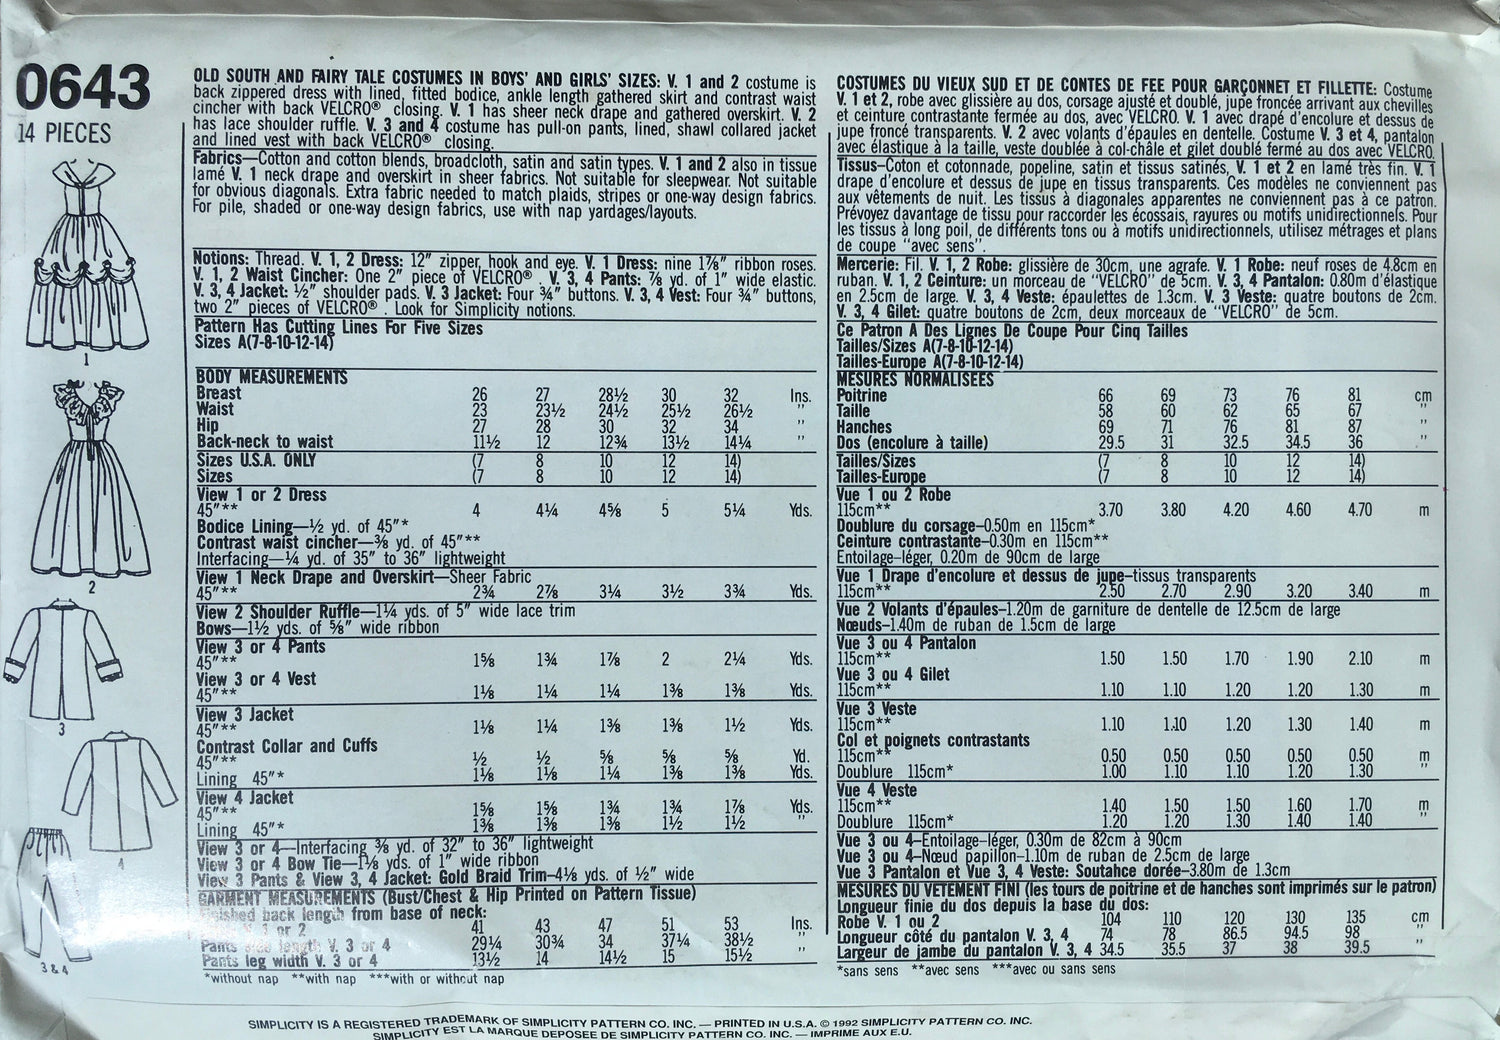 0643
14 PIECES
1
2
3
4
3 & 4
OLD SOUTH AND FAIRY TALE COSTUMES IN BOYS' AND GIRLS' SIZES: V. 1 and 2 costume is
back zippered dress with lined, fitted bodice, ankle length gathered skirt and contrast waist
cincher with back VELCRO® closing. V. 1 has sheer neck drape and gathered overskirt. V. 2
has lace shoulder ruffle. V. 3 and 4 costume has pull-on pants, lined, shawl collared jacket
and lined vest with back VELCRO® closing.
Fabrics—Cotton and cotton blends, broadcloth, satin and satin types. V. 1 and 2 also in tissue
lamé V. 1 neck drape and overskirt in sheer fabrics. Not suitable for sleepwear. Not suitable
for obvious diagonals. Extra fabric needed to match plaids, stripes or one-way design fabrics.
For pile, shaded or one-way design fabrics, use with nap yardages/layouts.
Notions: Thread. V. 1, 2 Dress: 12" zipper, hook and eye. V. 1 Dress: nine 1⅞" ribbon roses.
V. 1, 2 Waist Cincher: One 2" piece of VELCRO® V. 3, 4 Pants: ⅞ yd. of 1" wide elastic.
V. 3, 4 Jacket: ½" shoulder pads. V. 3 Jacket: Four ¾" buttons. V. 3, 4 Vest: Four ¾" buttons,
two 2" pieces of VELCRO® . Look for Simplicity notions.
Pattern Has Cutting Lines For Five Sizes
Sizes A(7-8-10-12-14)
BODY MEASUREMENTS
Breast 26 27 28½ 30 32 Ins.
Waist 23 23½ 24½ 25½ 26½ "
Hip 27 28 30 32 34 "
Back-neck to waist 11½ 12 12¾ 13½ 14¼ "
Sizes U.S.A. ONLY (7 8 10 12 14)
Sizes (7 8 10 12 14)
View 1 or 2 Dress
45"** 4 4¼ 4⅝ 5 5¼ Yds.
Bodice Lining—½ yd. of 45"*
Contrast waist cincher—⅜ yd. of 45"**
Interfacing—¼ yd. of 35" to 36" lightweight
View 1 Neck Drape and Overskirt—Sheer Fabric
45"** 2¾ 2⅞ 3¼ 3½ 3¾ Yds.
View 2 Shoulder Ruffle—1¼ yds. of 5" wide lace trim
Bows—1½ yds. of ⅝" wide ribbon
View 3 or 4 Pants
45"** 1⅝ 1¾ 1⅞ 2 2¼ Yds.
View 3 or 4 Vest
45"** 1⅛ 1¼ 1¼ 1⅜ 1⅜ Yds.
View 3 Jacket
45"** 1⅛ 1¼ 1⅜ 1⅜ 1½ Yds.
Contrast Collar and Cuffs
45"** ½ ½ ⅝ ⅝ ⅝ Yd.
Lining 45"* 1⅛ 1⅛ 1¼ 1⅜ 1⅜ Yds.
View 4 Jacket
45"** 1⅝ 1⅝ 1¾ 1¾ 1⅞ Yds.
Lining 45"* 1⅜ 1⅜ 1⅜ 1½ 1½ "
View 3 or 4—Interfacing ⅜ yd. of 32" to 36" lightweight
View 3 or 4 Bow Tie—1⅛ yds. of 1" wide ribbon
View 3 Pants & View 3, 4 Jacket: Gold Braid Trim—4⅛ yds. of ½" wide
GARMENT MEASUREMENTS (Bust/Chest & Hip Printed on Pattern Tissue)
Finished back length from base of neck:
V. 1 or 2 41 43 47 51 53 Ins.
Pants side length V. 3 or 4 29¼ 30¾ 34 37¼ 38½ "
Pants leg width V. 3 or 4 13½ 14 14½ 15 15½ "
*without nap **with nap ***with or without nap
COSTUMES DU VIEUX SUD ET DE CONTES DE FEE POUR GARÇONNET ET FILLETTE: Costume
V. 1 et 2, robe avec glissière au dos, corsage ajusté et doublé, jupe froncée arrivant aux chevilles
et ceinture contrastante fermée au dos, avec VELCRO. V. 1 avec drapé d'encolure et dessus de
jupe froncé transparents. V. 2 avec volants d'épaules en dentelle. Costume V. 3 et 4, pantalon
avec élastique à la taille, veste doublée à col-châle et gilet doublé fermé au dos avec VELCRO.
Tissus—Coton et cotonnade, popeline, satin et tissus satinés, V. 1 et 2 en lamé très fin. V. 1
drape d'encolure et dessus de jupe en tissus transparents. Ces modèles ne conviennent pas
aux vêtements de nuit. Les tissus à diagonales apparentes ne conviennent pas à ce patron.
Prévoyez davantage de tissu pour raccorder les écossais, rayures ou motifs unidirectionnels. Pour
les tissus à long poil, de différents tons ou à motifs unidirectionnels, utilisez métrages et plans
de coupe "avec sens".
Mercerie: Fil. V. 1, 2 Robe: glissière de 30cm, une agrafe. V. 1 Robe: neuf roses de 4.8cm en
ruban. V. 1, 2 Ceinture: un morceau de "VELCRO" de 5cm. V. 3, 4 Pantalon: 0.80m d'élastique
en 2.5cm de large. V. 3, 4 Veste: épaulettes de 1.3cm. V. 3 Veste: quatre boutons de 2cm.
V. 3, 4 Gilet: quatre boutons de 2cm, deux morceaux de "VELCRO" de 5cm.
Ce Patron A Des Lignes De Coupe Pour Cinq Tailles
Tailles/Sizes A(7-8-10-12-14)
Tailles-Europe A(7-8-10-12-14)
MESURES NORMALISEES
Poitrine 66 69 73 76 81 cm
Taille 58 60 62 65 67 "
Hanches 69 71 76 81 87 "
Dos (encolure à taille) 29.5 31 32.5 34.5 36 "
Tailles/Sizes (7 8 10 12 14)
Tailles-Europe (7 8 10 12 14)
Vue 1 ou 2 Robe
115cm** 3.70 3.80 4.20 4.60 4.70 m
Doublure du corsage–0.50m en 115cm*
Ceinture contrastante–0.30m en 115cm**
Entoilage–léger, 0.20m de 90cm de large
Vue 1 Drape d'encolure et dessus de jupe–tissus transparents
115cm** 2.50 2.70 2.90 3.20 3.40 m
Vue 2 Volants d'épaules–1.20m de garniture de dentelle de 12.5cm de large
Nœuds–1.40m de ruban de 1.5cm de large
Vue 3 ou 4 Pantalon
115cm** 1.50 1.50 1.70 1.90 2.10 m
Vue 3 ou 4 Gilet
115cm** 1.10 1.10 1.20 1.20 1.30 m
Vue 3 Veste
115cm** 1.10 1.10 1.20 1.30 1.40 m
Col et poignets contrastants
115cm** 0.50 0.50 0.50 0.50 0.50 m
Doublure 115cm* 1.00 1.10 1.10 1.20 1.30 "
Vue 4 Veste
115cm** 1.40 1.50 1.50 1.60 1.70 m
Doublure 115cm* 1.20 1.20 1.30 1.40 1.40 "
Vue 3 ou 4–Entoilage–léger, 0.30m de 82cm à 90cm
Vue 3 ou 4–Nœud papillon–1.10m de ruban de 2.5cm de large
Vue 3 Pantalon et Vue 3, 4 Veste: Soutache dorée–3.80m de 1.3cm
MESURES DU VETEMENT FINI (les tours de poitrine et de hanches sont imprimés sur le patron)
Longueur finie du dos depuis la base du dos:
Robe V. 1 ou 2 104 110 120 130 135 cm
Longueur côté du pantalon V. 3, 4 74 78 86.5 94.5 98 "
Largeur de jambe du pantalon V. 3, 4 34.5 35.5 37 38 39.5 "
*sans sens **avec sens ***avec ou sans sens
SIMPLICITY IS A REGISTERED TRADEMARK OF SIMPLICITY PATTERN CO. INC. — PRINTED IN U.S.A. © 1992 SIMPLICITY PATTERN CO. INC.
SIMPLICITY EST LA MARQUE DEPOSEE DE SIMPLICITY PATTERN CO. INC. — IMPRIME AUX E.U.